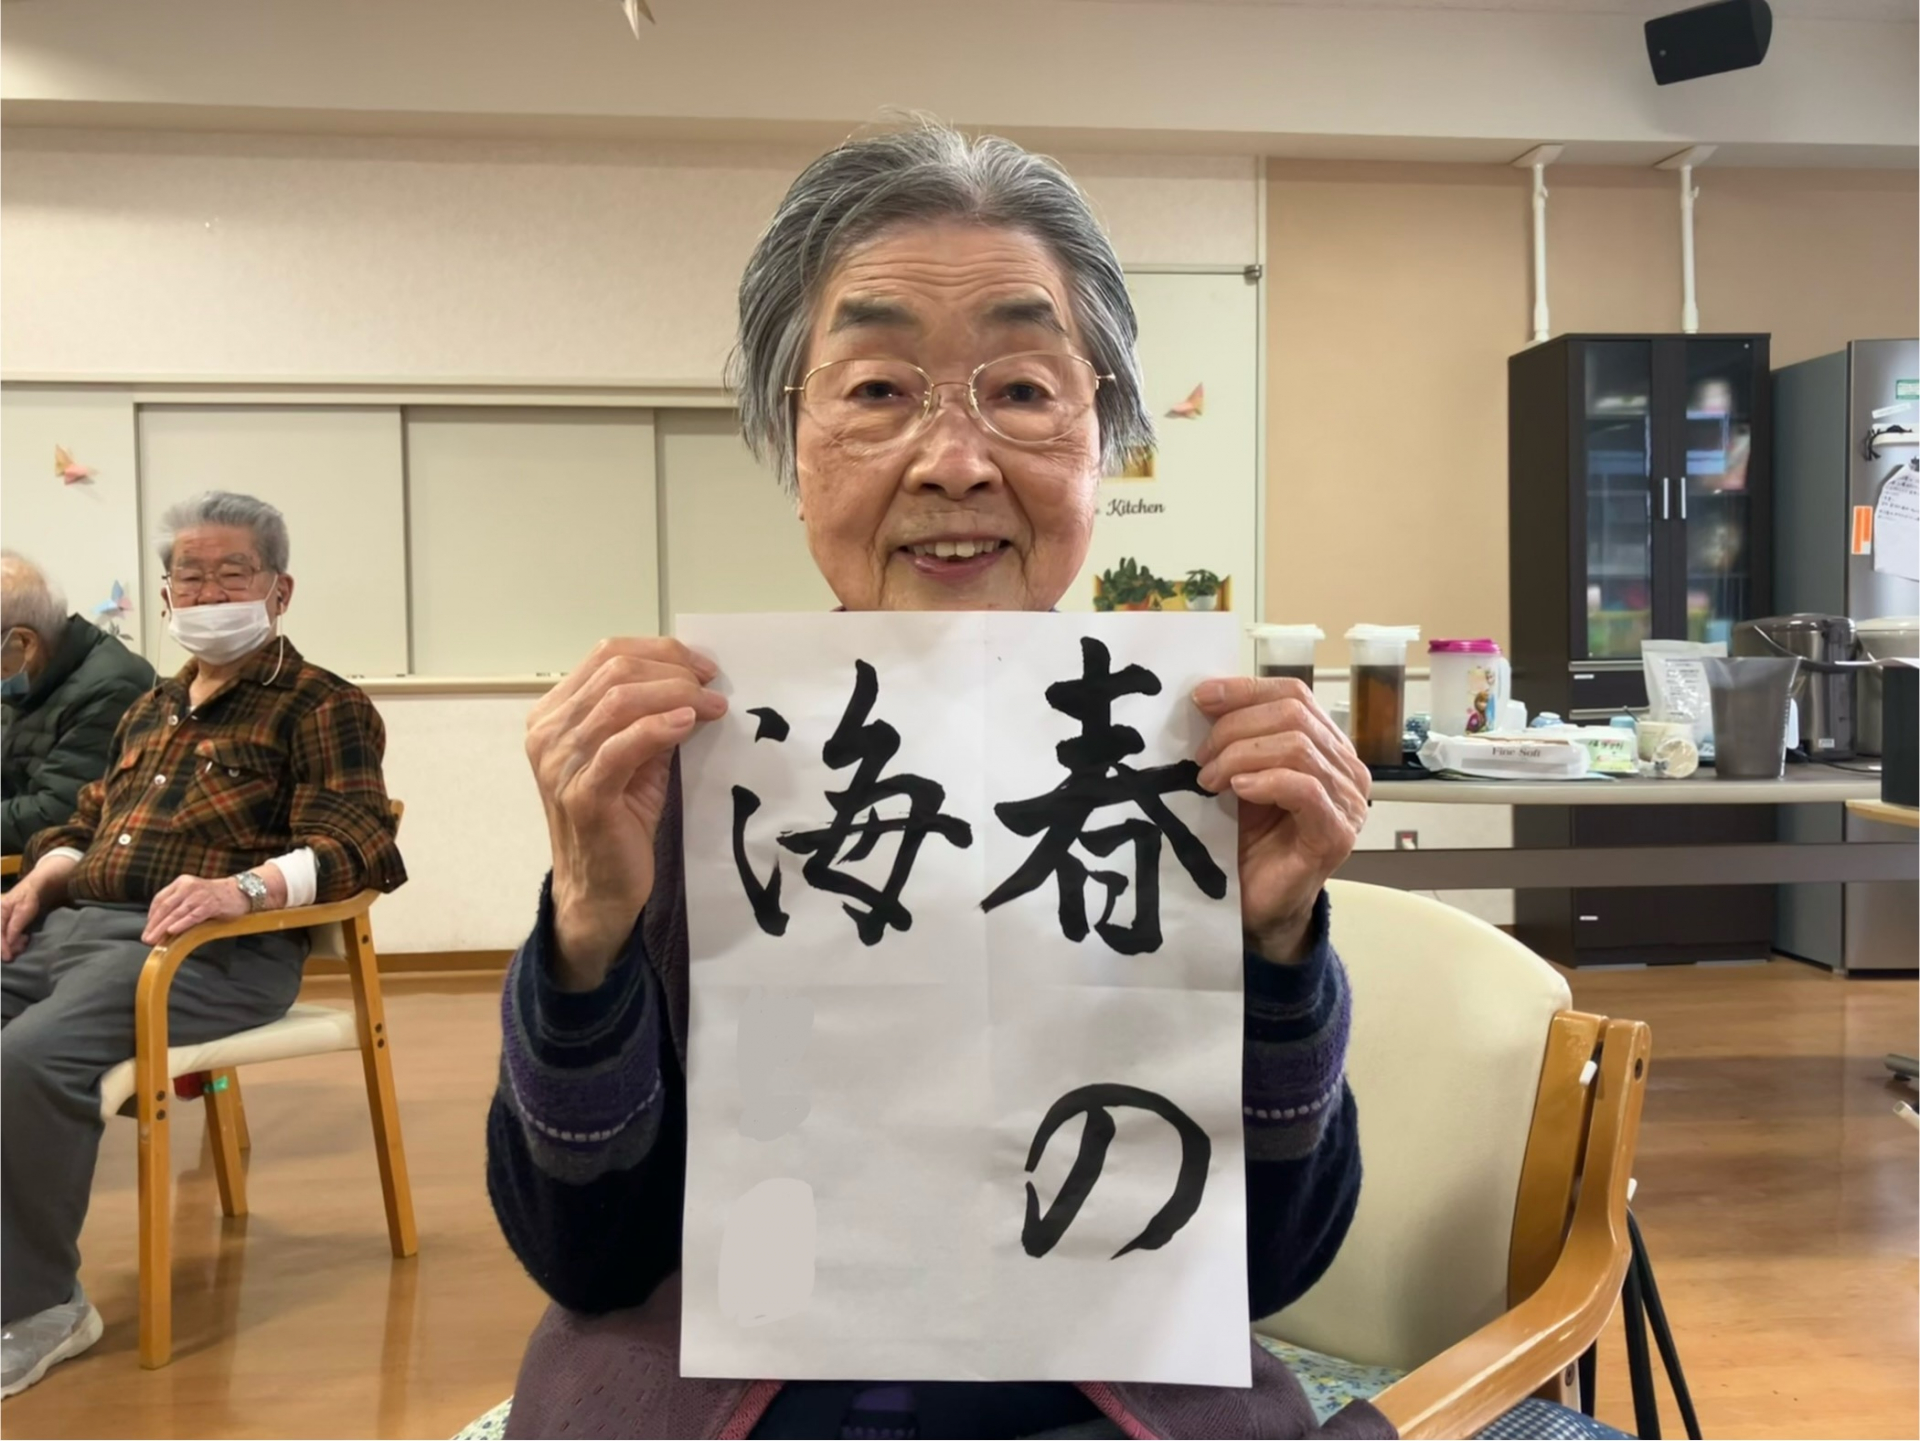 春の
海
Kitchen
Fine Soft